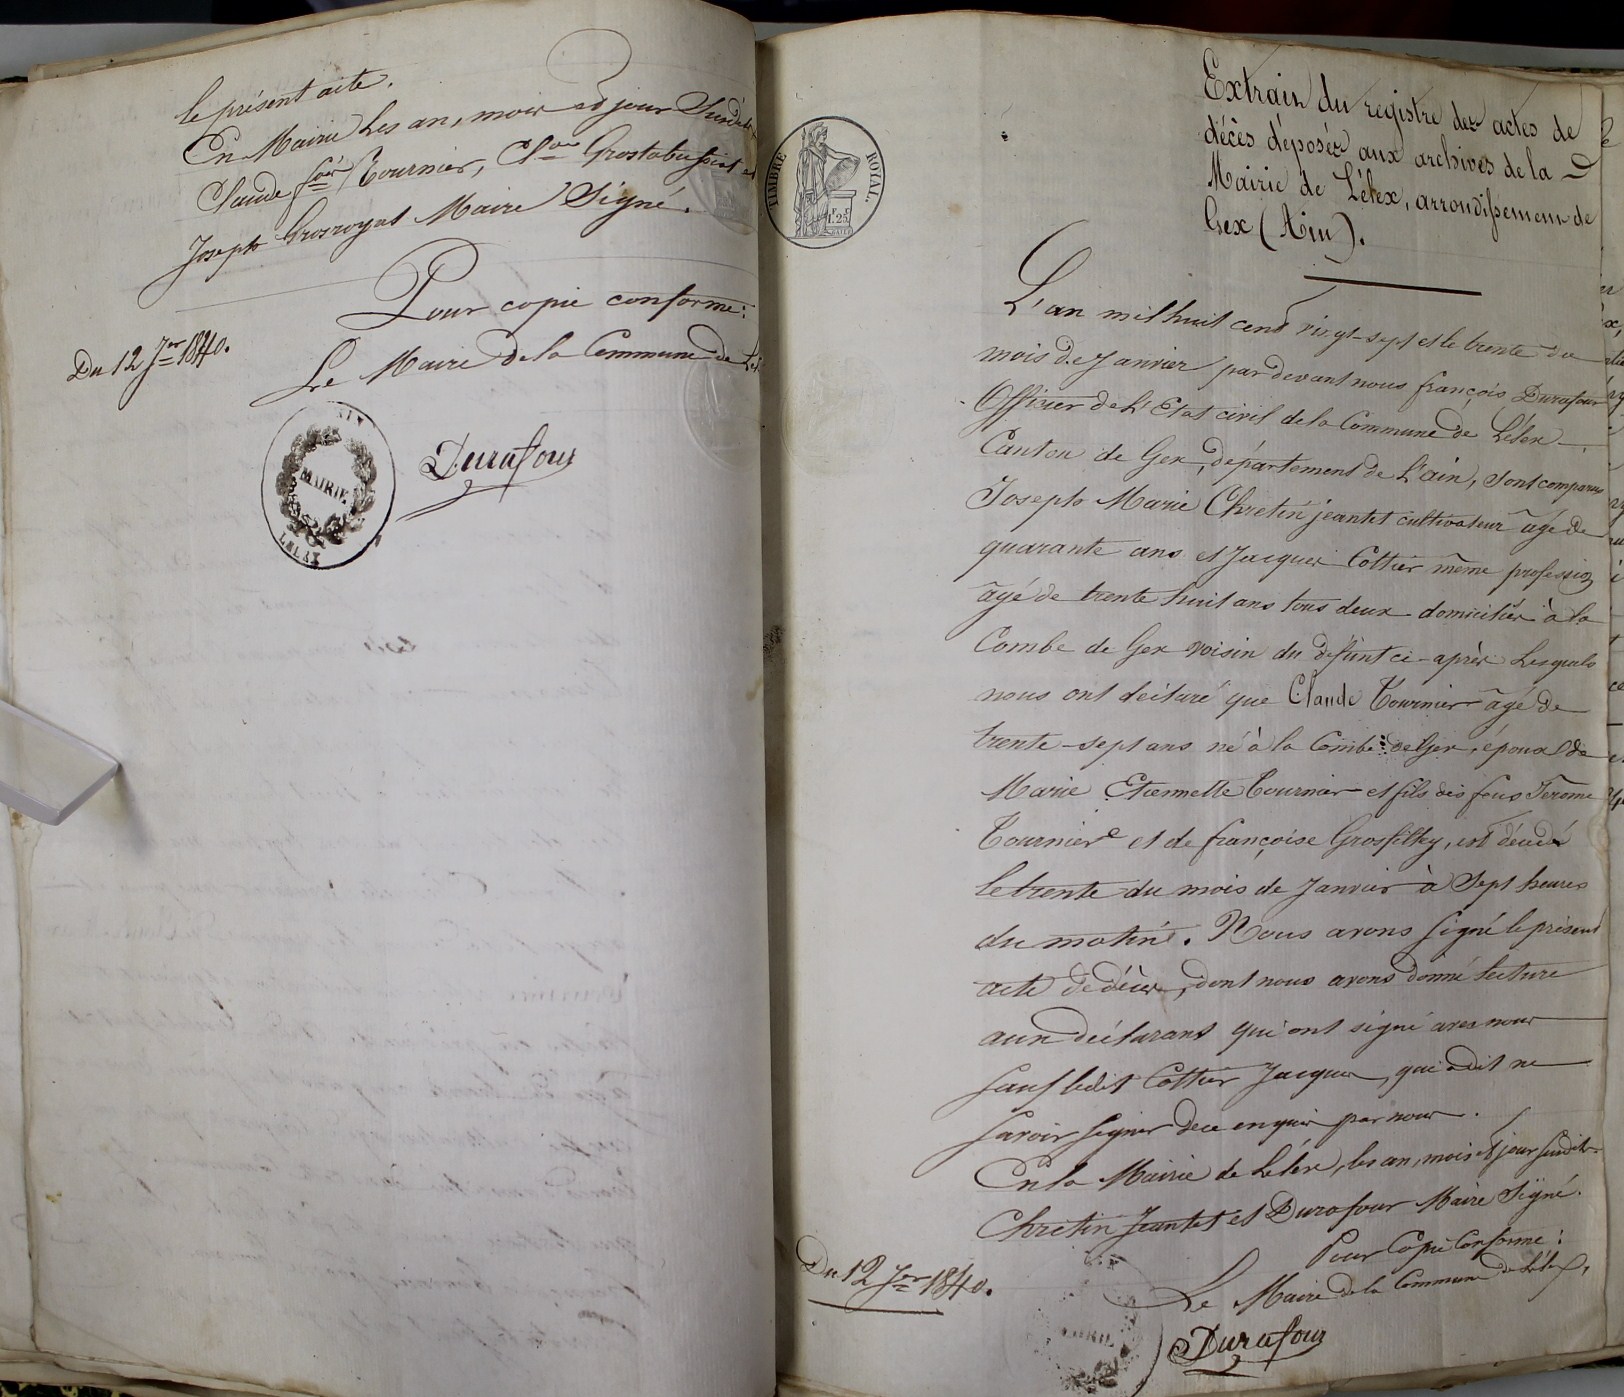 le présent acte.
En Mairie les an, mois et jour Susdits
Claude fois Tournier, Cde Grostabussiat et
Joseph Grosroyat Maire Signé.
Pour copie conforme:
Le Maire de la Commune de Lél
Du 12 Jer 1840.
AIN
MAIRIE
LELEX
Durafour
TIMBRE ROYAL.
1F.25
Extrait du registre des actes de
décès déposés aux archives de la
Mairie de Lélex, arrondissement de
Gex (Ain).
L'an mil huit cent vingt-sept et le trente du
mois de Janvier par devant nous françois Durafour
Officier de L'Etat civil de la Commune de Lélex
Canton de Gex, département de L'ain, sont comparus
Joseph Marie Chretin jeantet cultivateur âgé de
quarante ans et Jacques Cottier même profession
âgé de trente huit ans tous deux domiciliés à la
Combe de Gex voisin du défunt ci-après Lesquels
nous ont déclaré que Claude Tournier âgé de
trente-sept ans né à la Combe de Gex, époux de
Marie Etiennette Tournier et fils des feus Jerome
Tournier et de françoise Grosfilley, est décédé
le trente du mois de Janvier à Sept heures
du matine. Nous avons signé le présent
acte de décès, dont nous avons donné lecture
aux déclarant qui ont signé avec nous
sauf ledit Cottier Jacques, qui a dit ne
savoir signer de ce enquis par nous.
En la Mairie de Lélex, les an, mois et jour susdits
Chretin Jeantet et Durafour Maire Signé.
Pour Copie Conforme:
Du 12 Jer 1840.
Le Maire de la Commune de Lélex,
Durafour